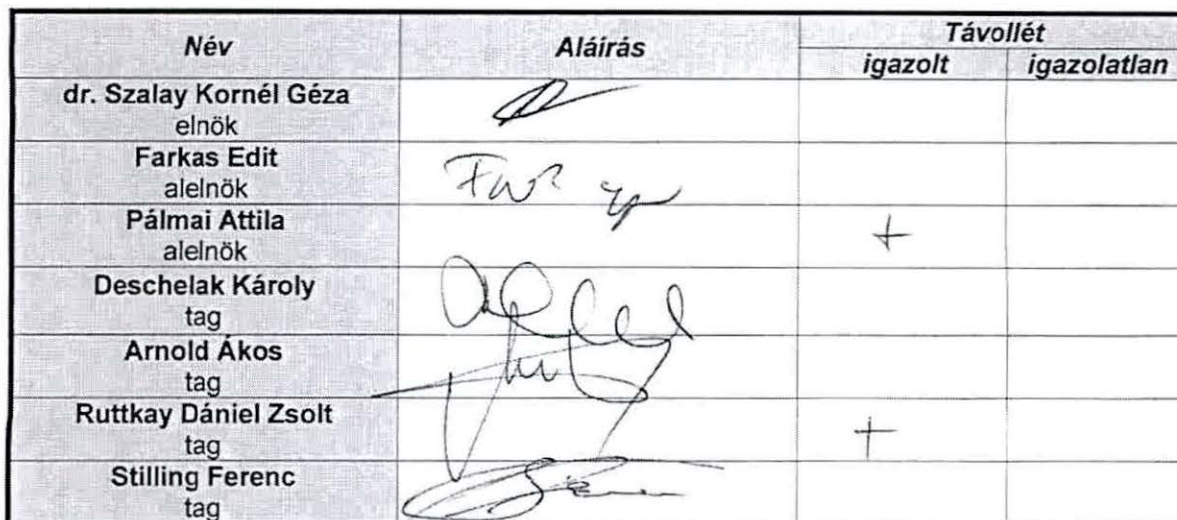 Név Aláírás Távollét
igazolt igazolatlan
dr. Szalay Kornél Géza
elnök
Farkas Edit
alelnök
Pálmai Attila
alelnök +
Deschelak Károly
tag
Arnold Ákos
tag
Ruttkay Dániel Zsolt
tag +
Stilling Ferenc
tag